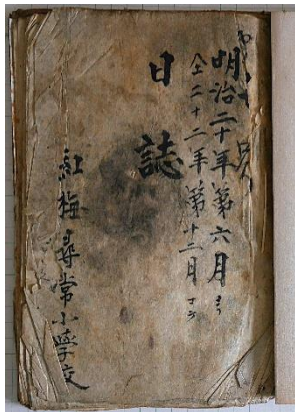 明治二十年第六月ヨリ
仝二十二年第十二月マデ
日誌
紅梅尋常小學校